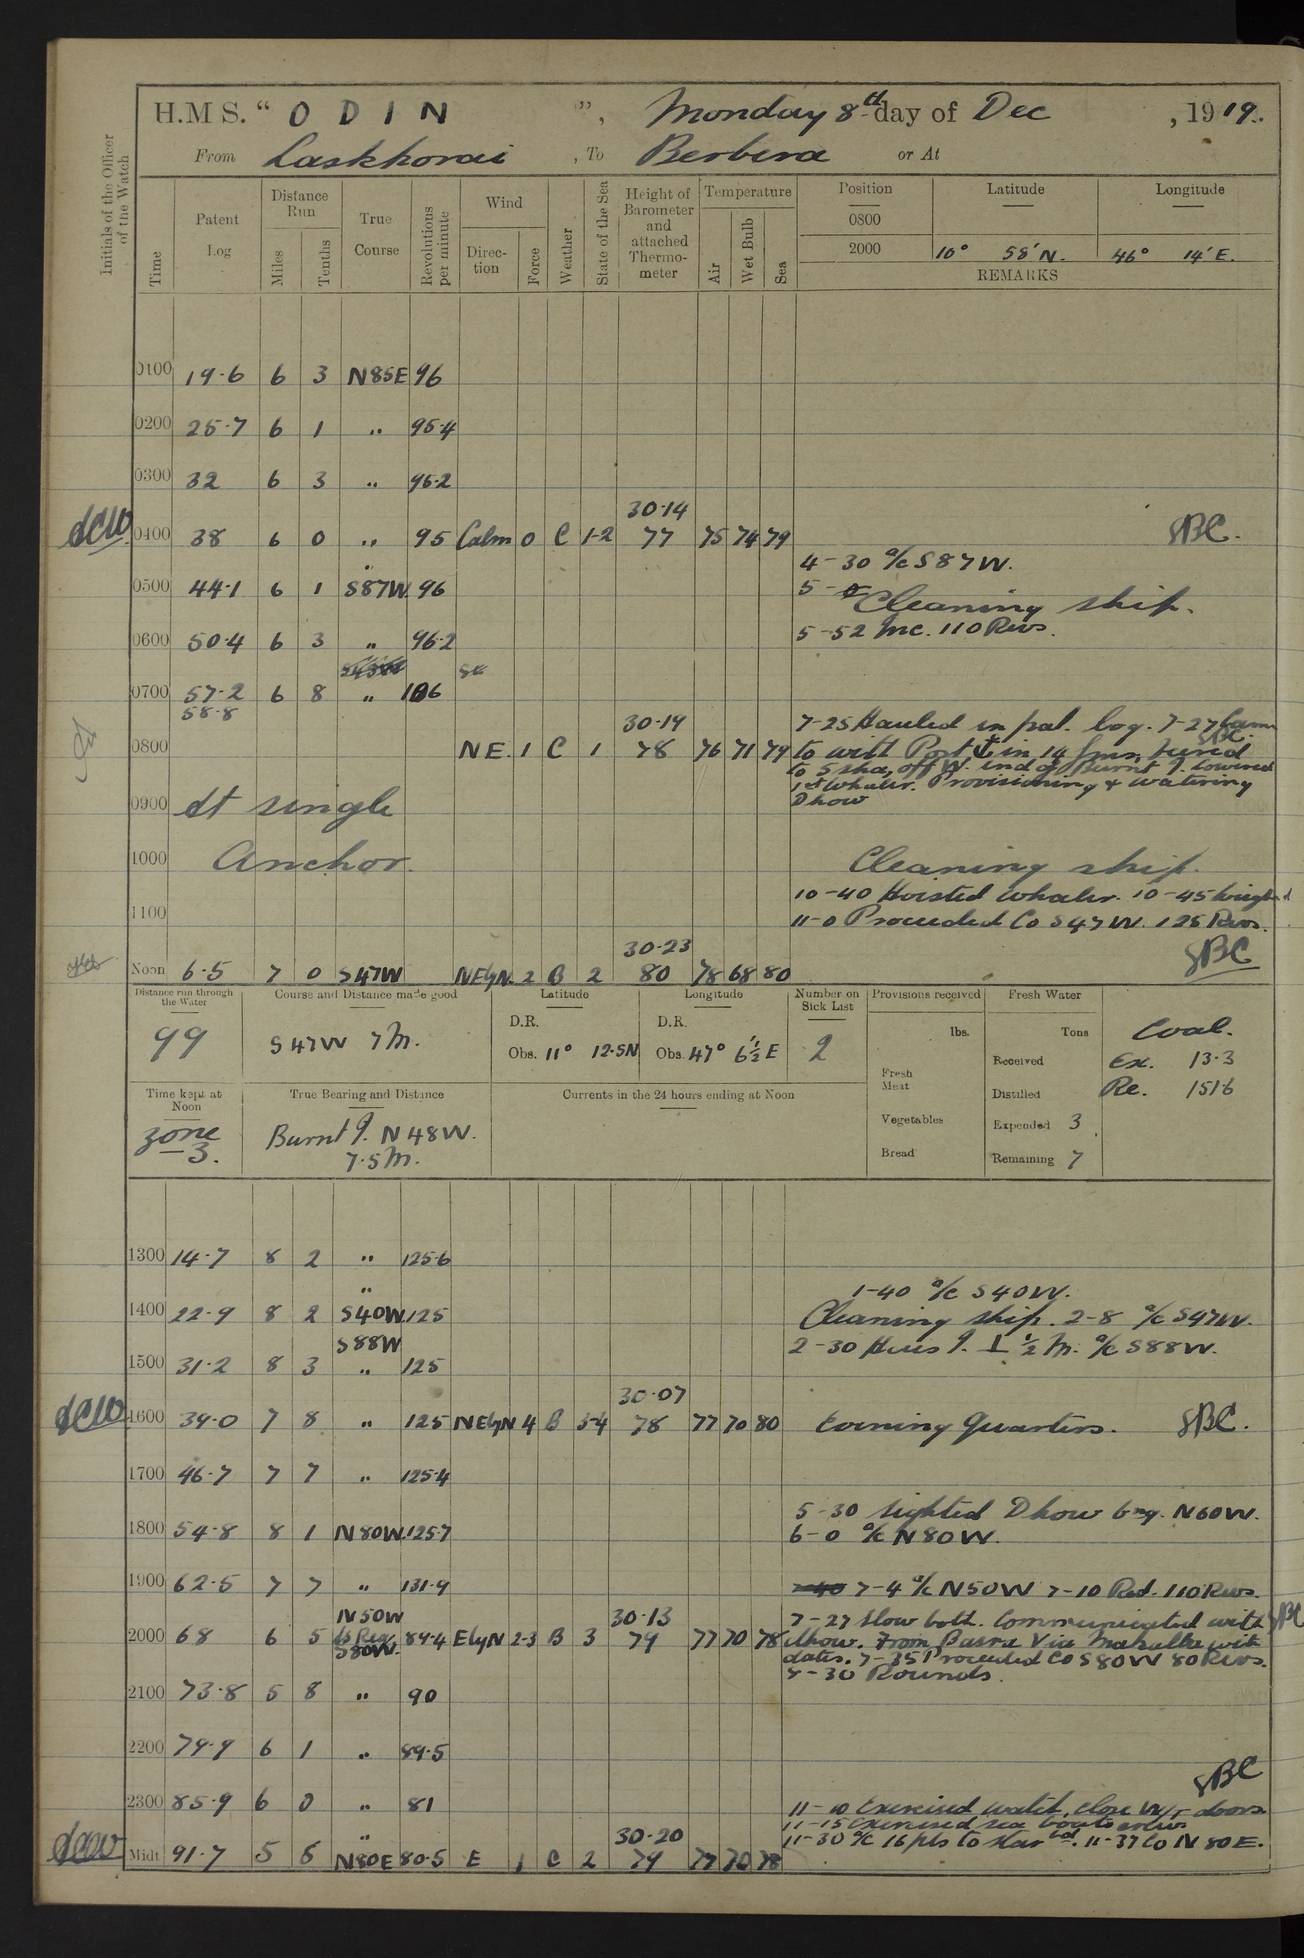 H.M S. “ ODIN ”, Monday 8th day of Dec , 1919.
From Laskhorai , To Berbera or At
Initials of the Officer of the Watch
Time
Patent Log
Distance Run
Miles
Tenths
True Course
Revolutions per minute
Wind
Direction
Force
Weather
State of the Sea
Height of Barometer and attached Thermometer
Temperature
Air
Wet Bulb
Sea
Position Latitude Longitude
0800
2000 10° 58′ N. 46° 14′ E.
REMARKS
0100 19·6 6 3 N85E 96
0200 25·7 6 1 " 95·4
0300 32 6 3 " 96·2
30·14
0400 38 6 0 " 95 Calm 0 C 1-2 77 75 74 79 SBC.
4-30 a/c S87W.
"
0500 44·1 6 1 S87W. 96
5- Cleaning ship.
5-52 Inc. 110 Revs.
0600 50·4 6 3 " 96·2
0700 57·2 6 8 " 106
58·8
30·14
7-25 Hauled in pat. log. 7-27 Came
0800 NE. 1 C 1 78 76 71 79 to with Port ⚓ in 14 fms, veered
to 5 shs, off W. end of Burnt I. Lowered
1st Whaler. Provisioning & watering
Dhow
0900 At single
1000 Anchor. Cleaning ship.
10-40 Hoisted whaler. 10-45 weighed
1100
11-0 Proceeded Co S47W. 125 Revs.
30·23
SBC
Noon 6·5 7 0 S47W NEbyN. 2 B 2 80 78 68 80
Distance run through the Water
99
Course and Distance made good
S47W 7 M.
Latitude
D.R.
Obs. 11° 12·5N
Longitude
D.R.
Obs. 47° 6½′ E
Number on Sick List
2
Provisions received
lbs.
Fresh Meat
Vegetables
Bread
Fresh Water
Tons
Received
Distilled
Expended 3
Remaining 7
Coal.
Ex. 13·3
Re. 151·6
Time kept at Noon
Zone
-3.
True Bearing and Distance
Burnt I. N48W.
7·5 M.
Currents in the 24 hours ending at Noon
1300 14·7 8 2 " 125·6
"
1-40 a/c S40W.
1400 22·9 8 2 S40W. 125 Cleaning ship. 2-8 a/c S47W.
S88W
2-30 Heis I. ⊥ ½ M. a/c S88W.
1500 31·2 8 3 " 125
30·07
1600 39·0 7 8 " 125 NEbyN 4 B 3-4 78 77 70 80 Evening Quarters. SBC.
1700 46·7 7 7 " 125·4
5-30 sighted Dhow brg. N60W.
1800 54·8 8 1 N80W. 125·7 6-0 a/c N80W.
1900 62·5 7 7 " 131·9 7-4 a/c N50W 7-10 Red. 110 Revs.
N50W
30·13
7-27 Slow both. Communicated with SBC
2000 68 6 5 as Req. 89·4 EbyN 2-3 B 3 79 77 70 78 dhow. From Basra via Makalla with
S80W.
dates. 7-35 Proceeded Co S80W 80 Revs.
8-30 Rounds.
2100 73·8 5 8 " 90
2200 79·9 6 1 " 89·5
SBC
2300 85·9 6 0 " 81
11-10 Exercised watch, close W/T doors
11-15 Exercised sea boats crews
"
30·20
11-30 a/c 16 pts to starbd. 11-37 Co N80E.
Midt 91·7 5 8 N80E 80·5 E 1 C 2 79 77 70 78